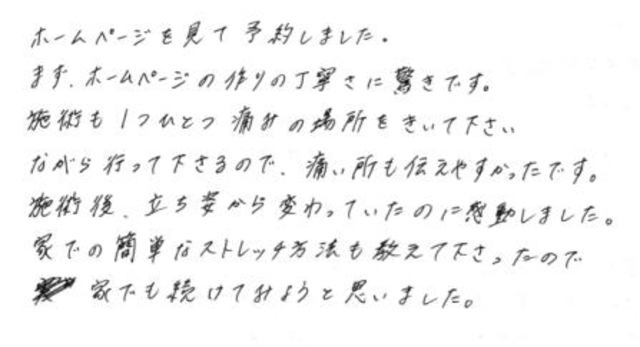 ホームページを見て予約しました。
まず、ホームページの作りの丁寧さに驚きです。
施術も1つひとつ痛みの場所をきいて下さい
ながら行って下さるので、痛い所も伝えやすかったです。
施術後、立ち姿から変わっていたのに感動しました。
家での簡単なストレッチ方法も教えて下さったので
家でも続けてみようと思いました。